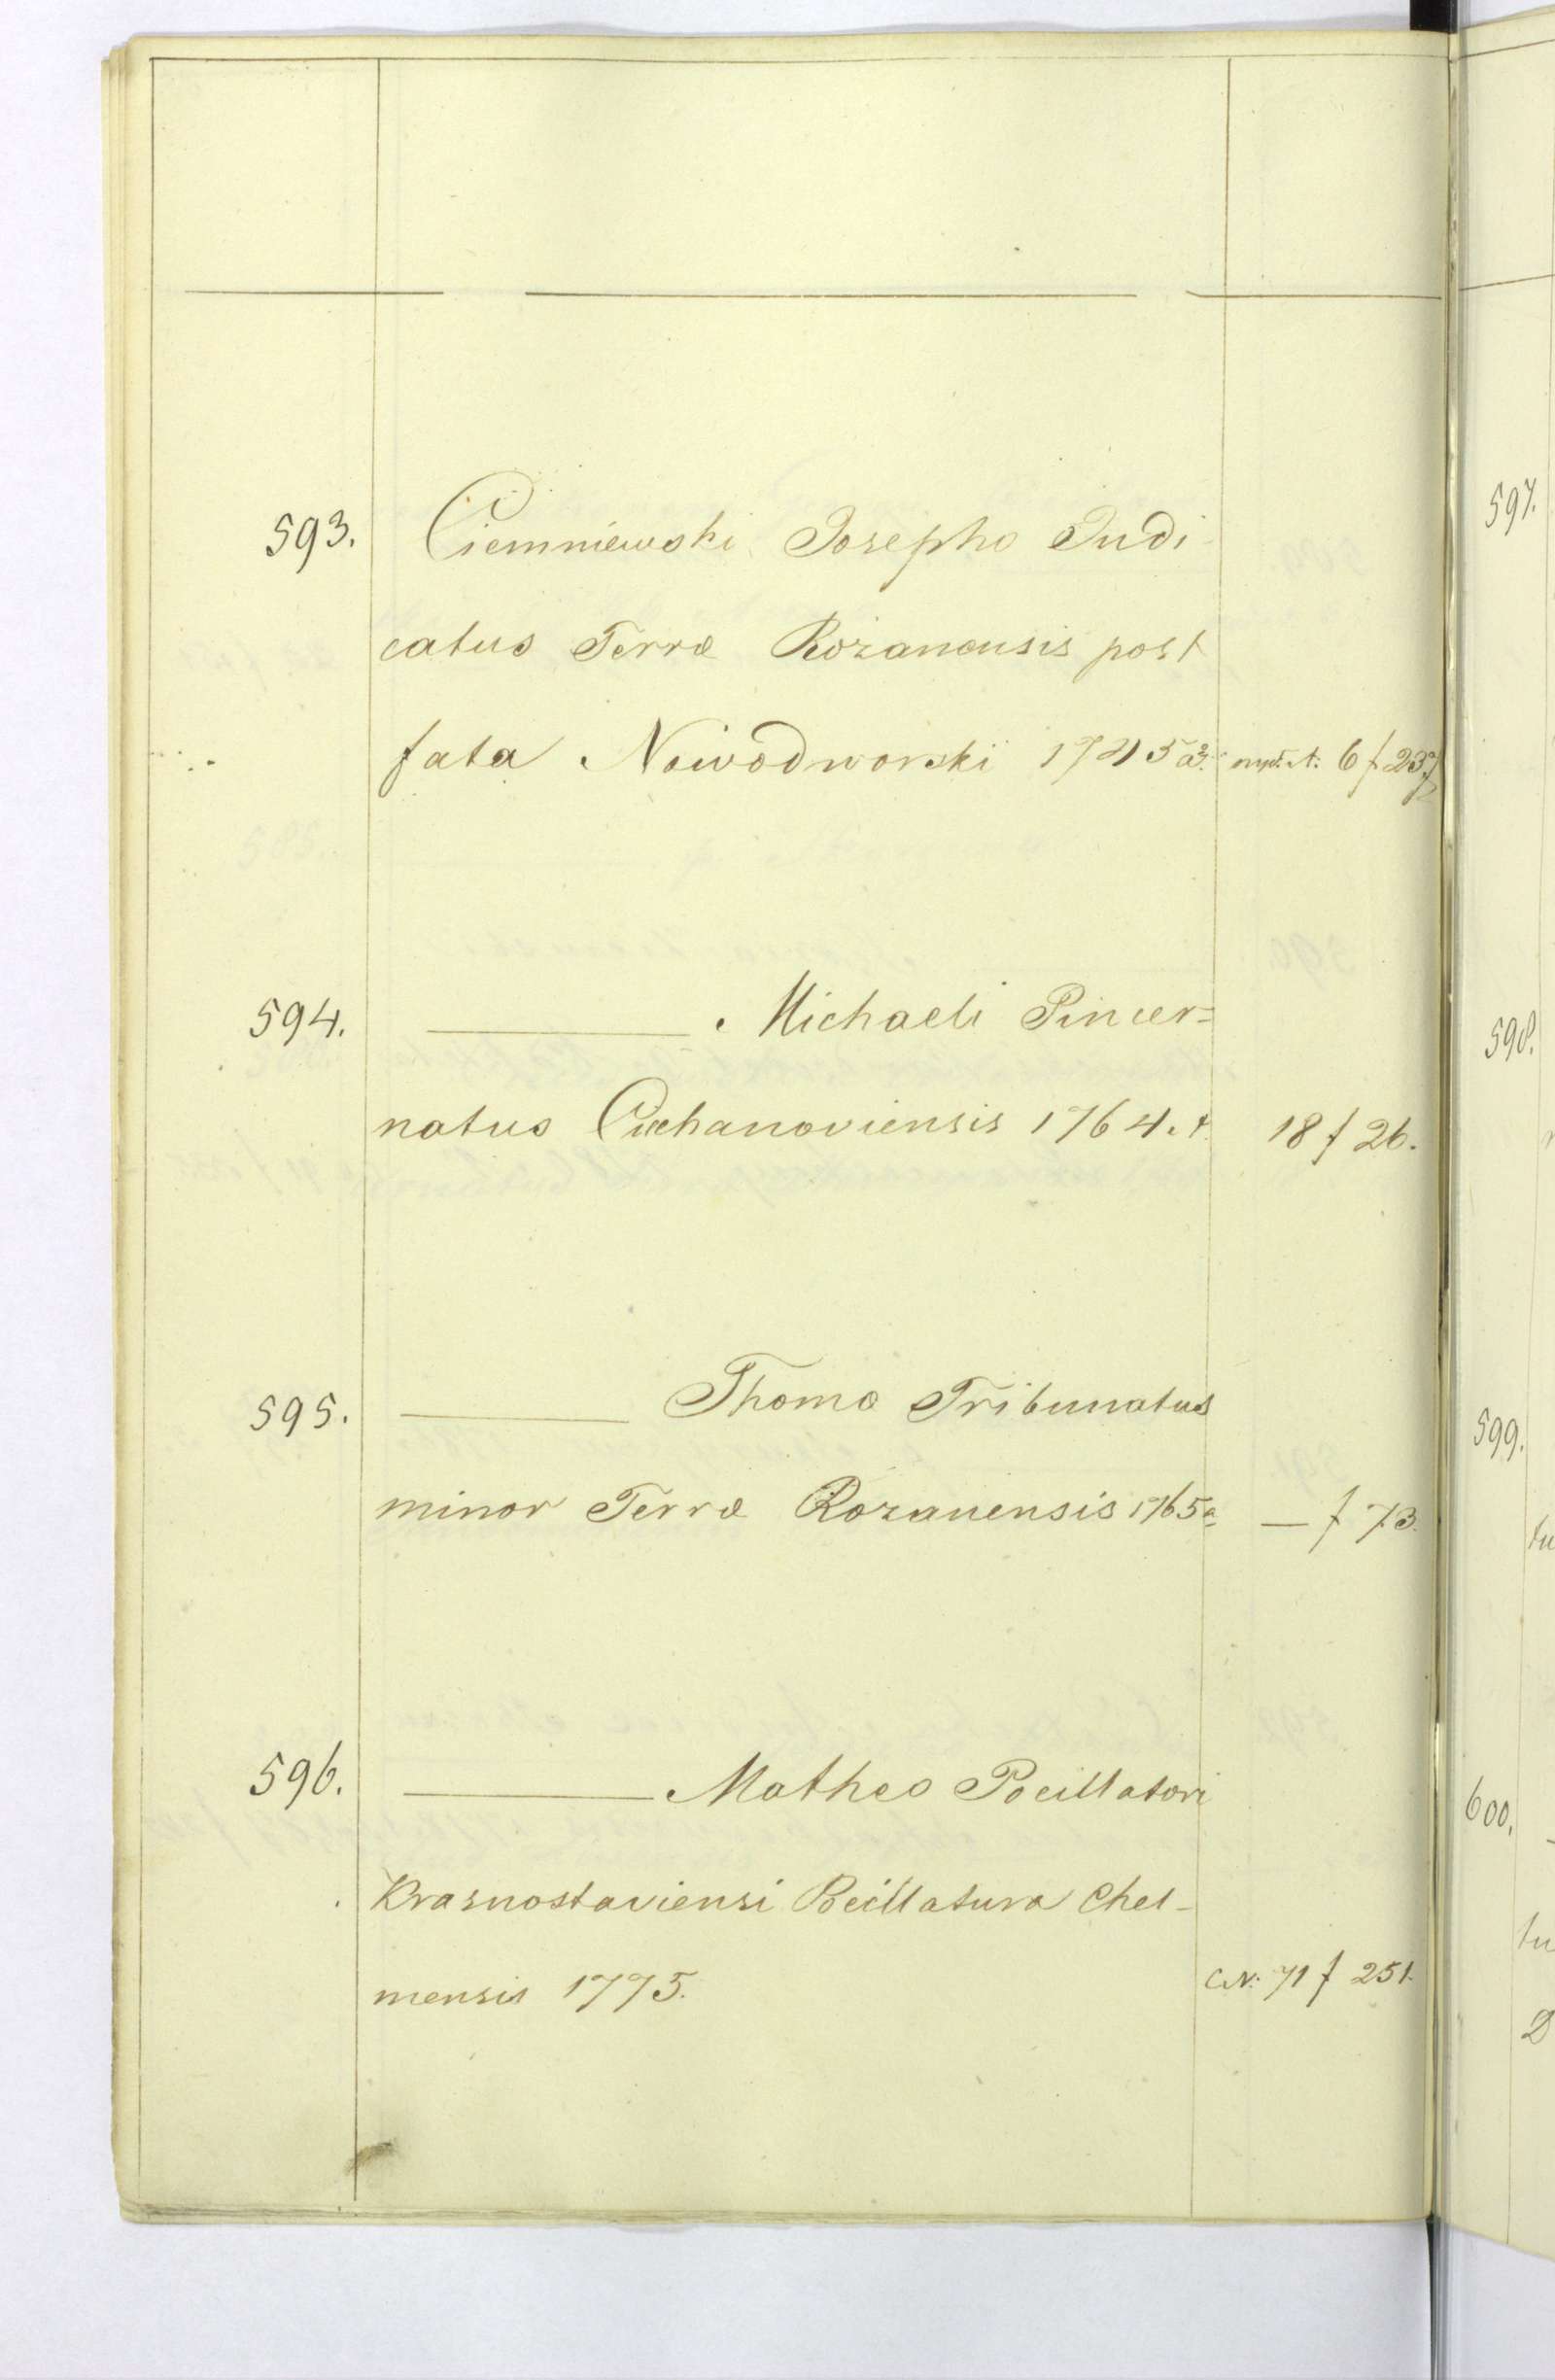 593. Ciemniewski Josepho Judi-
catus Terræ Rozanensis post
fata Nowodworski 1745 a 6 f 23
594. ——— Michaeli Pincer=
natus Ciechanoviensis 1764. 18 f 26.
595. ——— Thomæ Tribunatus
minor Terræ Rozanensis 1765 a — f 73.
596. ——— Matheo Pocillatori
Krasnostaviensi Pocillatura Chel-
mensis 1775. N: 71 f 251.
597.
598.
599.
tu
600.
tu
D